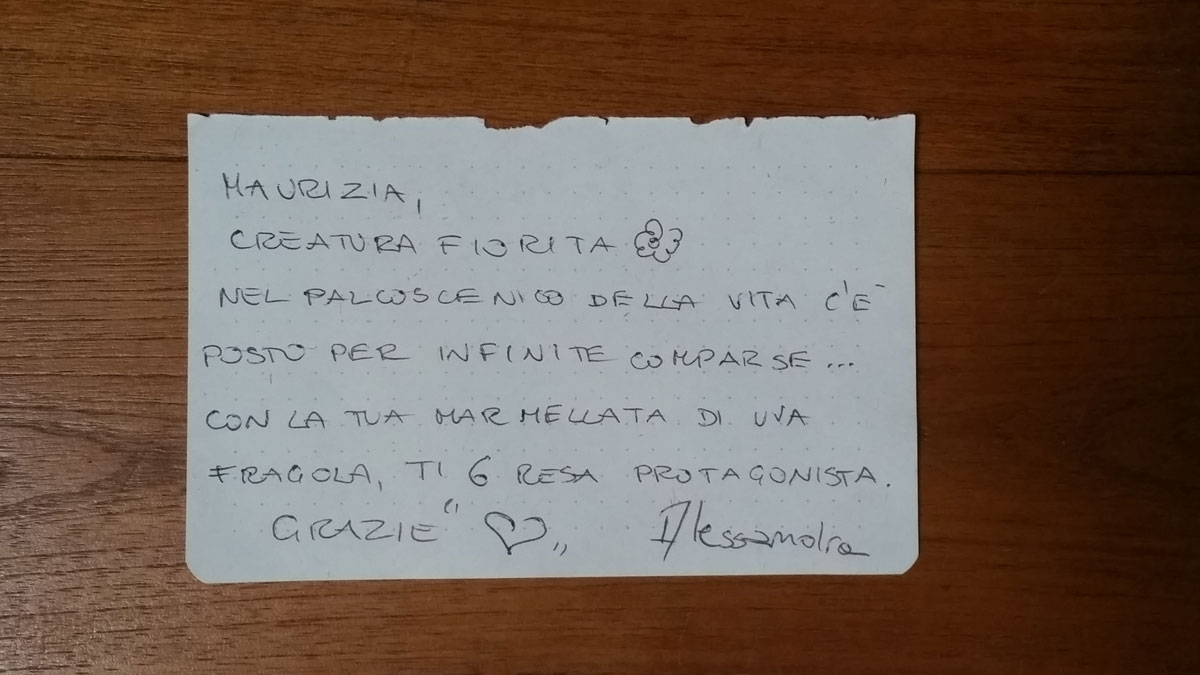 MAURIZIA,
CREATURA FIORITA
NEL PALCOSCENICO DELLA VITA C'È
POSTO PER INFINITE COMPARSE...
CON LA TUA MARMELLATA DI UVA
FRAGOLA, TI 6 RESA PROTAGONISTA.
GRAZIE " ♡ „ Alessandra